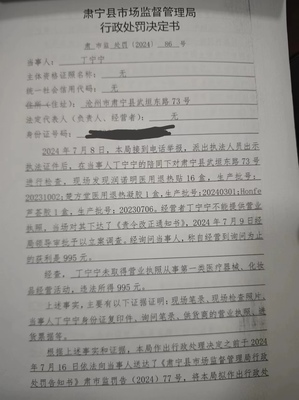 肃宁县市场监督管理局
行政处罚决定书
肃 市监 处罚 〔 2024 〕 06 号
当事人： 丁宁宁
主体资格证照名称： 无
统一社会信用代码： 无
住所（住址）： 沧州市肃宁县武垣东路 73 号
法定代表人（负责人、经营者）： 无
身份证号码：
2024 年 7 月 8 日，本局接到电话举报，派出执法人员出示
执法证件后，在当事人丁宁宁的陪同下对肃宁县武垣东路 73 号
进行检查，现场发现润诺明医用退热贴 16 盒，生产批号：
20231002；楚方堂医用退热凝胶 1 盒，生产批号：20240301；Honfe
芦荟胶 1 盒，生产批号：20230706，经营者丁宁宁不能提供营业
执照，当场对其下达了《责令改正通知书》，2024 年 7 月 9 日经
局领导审批予以立案调查，经询问当事人，称自经营到询问为止
的获利是 995 元。
经查，丁宁宁未取得营业执照从事第一类医疗器械、化妆
品经营活动，违法所得 995 元。
上述事实，主要有以下证据证明：现场笔录、现场检查照片、
当事人丁宁宁身份证复印件、询问笔录、供货商的营业执照、进
货票据等。
根据上述事实和证据，本局作出行政处理决定之前于 2024
年 7 月 16 日依法向当事人送达了《肃宁县市场监督管理局行政
处罚告知书》肃市监罚告（2024）77 号，将本局拟作出行政处